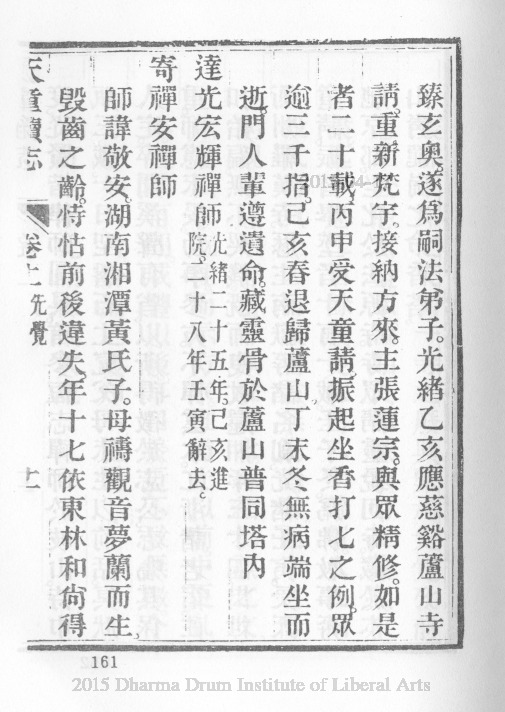 臻玄奧。遂爲嗣法弟子。光緒乙亥應慈谿蘆山寺
請。重新梵宇。接納方來。主張蓮宗。與眾精修。如是
者二十載。丙申受天童請。振起坐香打七之例。眾
逾三千指。己亥春退歸蘆山。丁未冬無病端坐而
逝。門人輩遵遺命。藏靈骨於蘆山普同塔內
達光宏輝禪師 光緒二十五年。己亥進
院。二十八年壬寅辭去。
寄禪安禪師
師諱敬安。湖南湘潭黃氏子。母禱觀音夢蘭而生。
毀齒之齡。恃怙前後違失。年十七依東林和尙得
天童續志 卷上 先覺 十一
161
2015 Dharma Drum Institute of Liberal Arts